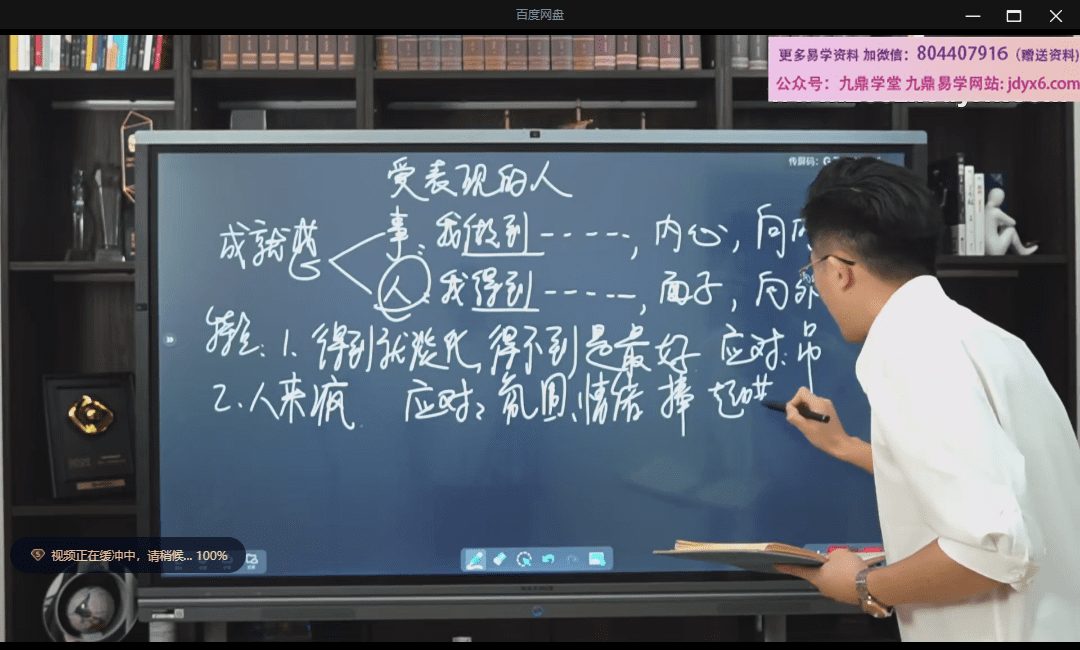 百度网盘
更多易学资料 加微信：804407916（赠送资料）
公众号：九鼎学堂 九鼎易学网站: jdyx6.com
传屏码：
受表现的人
成就
事：我做到-----，内心，向内
人：我得到-----，面子，向外
特点：1、得到就淡化，得不到是最好 应对：吊
2、人来疯 应对：氛围、情绪 捧 起哄
视频正在缓冲中，请稍候... 100%